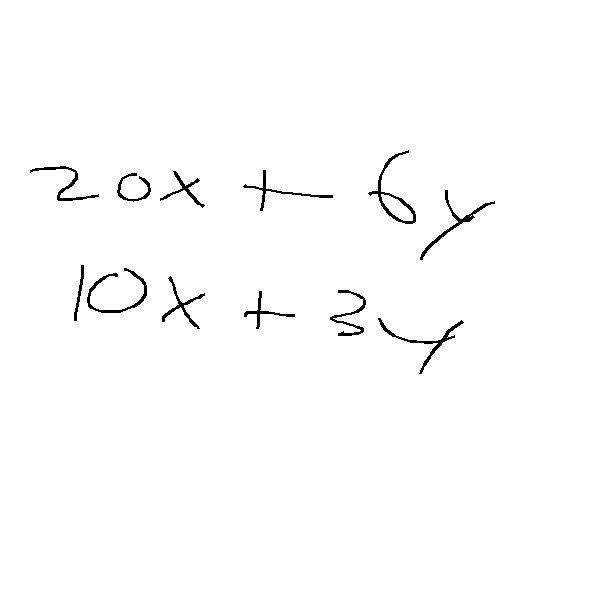 20x + 6y
10x + 3y